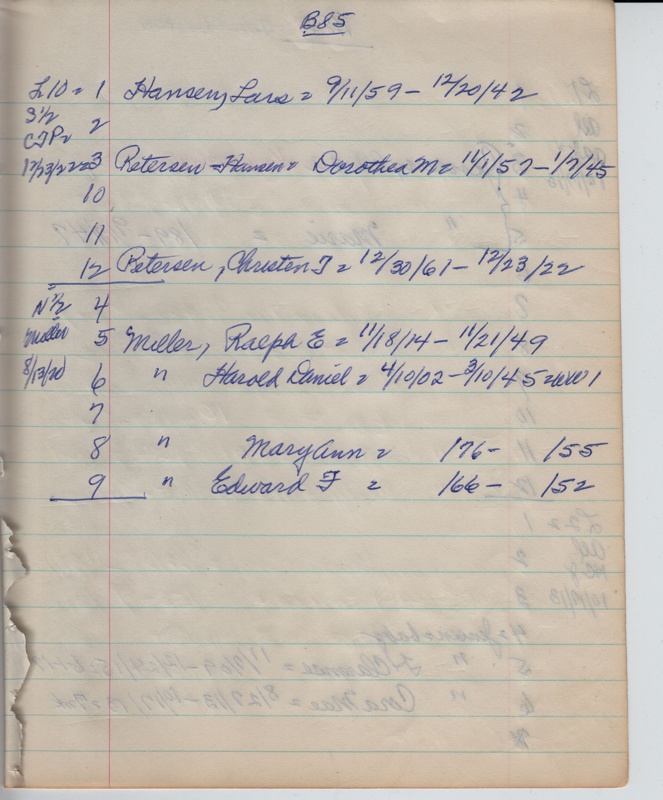 B85
L10 = 1 Hansen, Lars = 9/11/59 - 12/20/42
S 1/2
CTP= 2
12/23/22=3 Petersen-Hansen= Dorothea M= 11/1/57-1/7/45
10
11
12 Petersen, Christen T = 12/30/61 - 12/23/22
N 1/2 4
Miller 5 Miller, Ralph E = 11/18/14 - 11/21/49
8/13/20 6 " Harold Daniel = 4/10/02 - 3/10/45=WW1
7
8 " Mary Ann = 176- 155
9 " Edward F = 166- 152